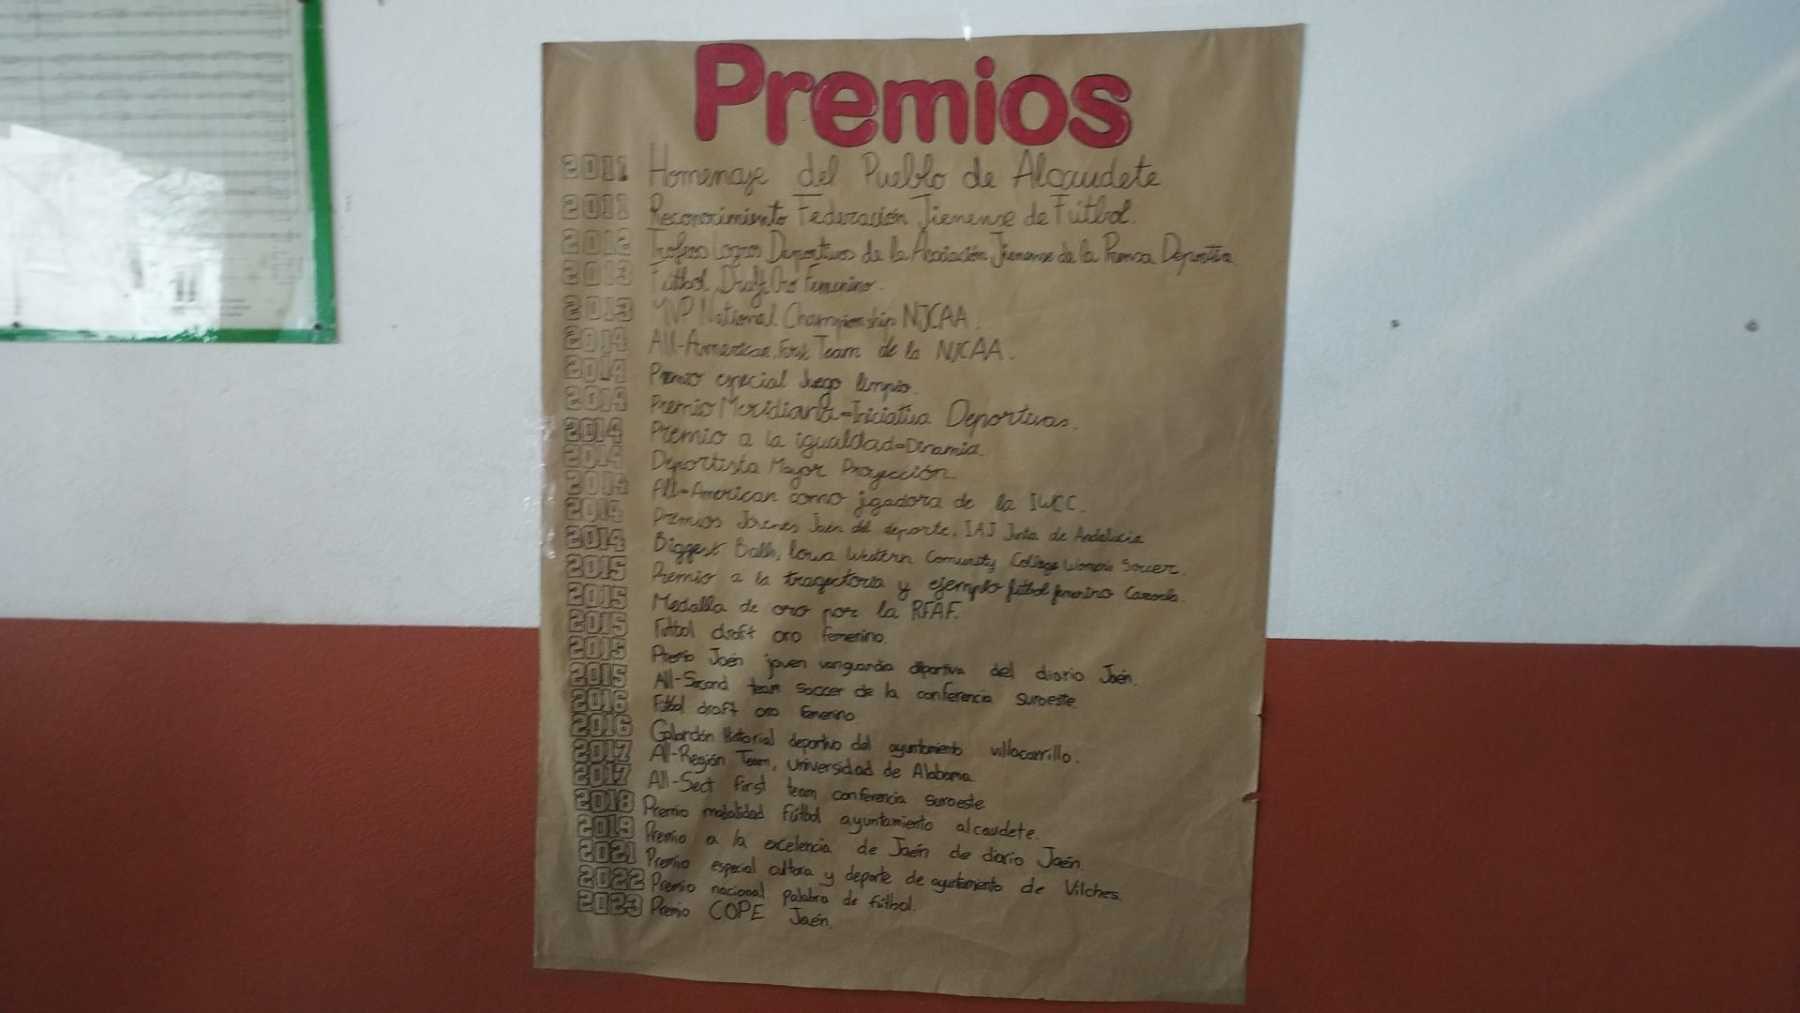 Premios
2011 Homenaje del Pueblo de Alcaudete
2011 Reconocimiento Federación Jienense de Fútbol.
2012 Trofeos Logros Deportivos de la Asociación Jienense de la Prensa Deportiva
2013 Fútbol Draft Oro Femenino.
2013 MVP National Championship NJCAA.
2014 All-American, First Team de la NJCAA.
2014 Premio especial Juego limpio.
2014 Premio Meridiana-Iniciativa Deportivas.
2014 Premio a la igualdad-Dinamia.
2014 Deportista Mayor Proyección
2014 All-American como jgadora de la IWCC.
2014 Premios Jóvenes Jaen del deporte, IAJ Junta de Andalucia
2014 Biggest Baller, Iowa Western Comunity College Women's Soccer.
2015 Premio a la tragectoria y ejemplo fútbol femenino Cazorla.
2015 Medalla de oro por la RFAF.
2015 Fútbol draft oro femenino.
2015 Premio Jaén joven vanguardia deportiva del diario Jaén.
2015 All-Second team soccer de la conferencia suroeste.
2016 Fútbol draft oro femenino
2016 Galardón deportivo del ayuntamiento villacarrillo.
2017 All-Región Team, Universidad de Alabama
2017 All-Sect first team conferencia suroeste
2018 Premio modalidad Fútbol ayuntamiento alcaudete.
2019 Premio a la excelencia de Jaén de diario Jaén.
2021 Premio especial cultura y deporte de ayuntamiento de Vilches.
2022 Premio nacional palabra de fútbol.
2023 Premio COPE Jaén.